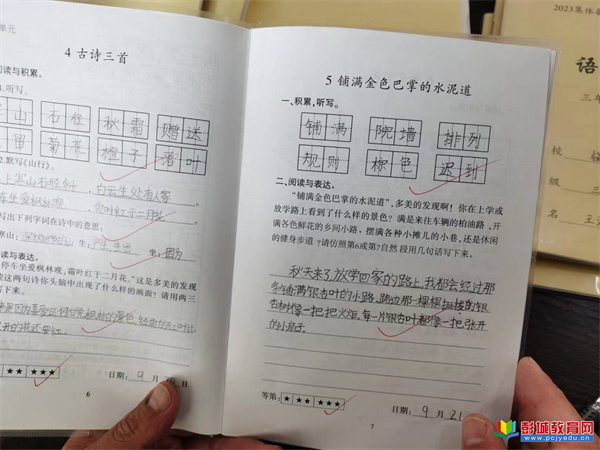 单元
4 古诗三首
阅读与积累。
听写。
山 石径 秋霜 赠送
留 菊 橙子 叶
2.默写《山行》。
上寒山石径斜,白云生处有人家。
坐爱枫林晚,霜叶红于二月花。
写出下列字词在诗中的意思。
寒山: 生: 坐:因为
停车坐爱枫林晚,霜叶红于二月花。”这是多美的发现
读这两句诗你头脑中出现了什么样的画面?请用两三
写下来。
★★ ★★★
日期: 9 月 日
6
5 铺满金色巴掌的水泥道
一、积累,听写。
铺满 院墙 排列
规则 棕色 迟到
二、阅读与表达。
“铺满金色巴掌的水泥道”,多美的发现啊!你在上学或
放学路上看到了什么样的景色?满是来往车辆的柏油路,开
满各色鲜花的乡间小路,摆满各种小摊儿的小巷,还是休闲
的健身步道?请仿照第6或第7自然段用几句话写下来。
秋天来了,放学回家的路上,我都会经过那
条铺满银杏叶的小路。路边那一棵棵挺拔的银
杏树像一把把火炬,每一片银杏叶都像一把张开
的小扇子。
等第: ★ ★★ ★★★
日期: 9 月 21
7
2023集体
语
三年
校
级
名
彭城教育网
www.pcjyedu.cn